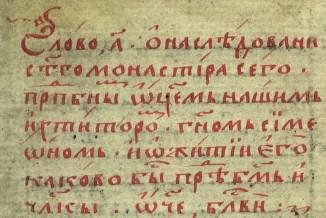 Слово, а҃. ѡ наслѣдованїи
ст҃го монастıра сего.
прпⷣбны ѡц҃емь нашимь
и хтиторѡ. гн҃омь сїме
ѡномь. и ѡ житїи ѥго
каково бы прѣбⷭ҇мь и
ч҃лкы. ѡч҃е, бл҃ви: